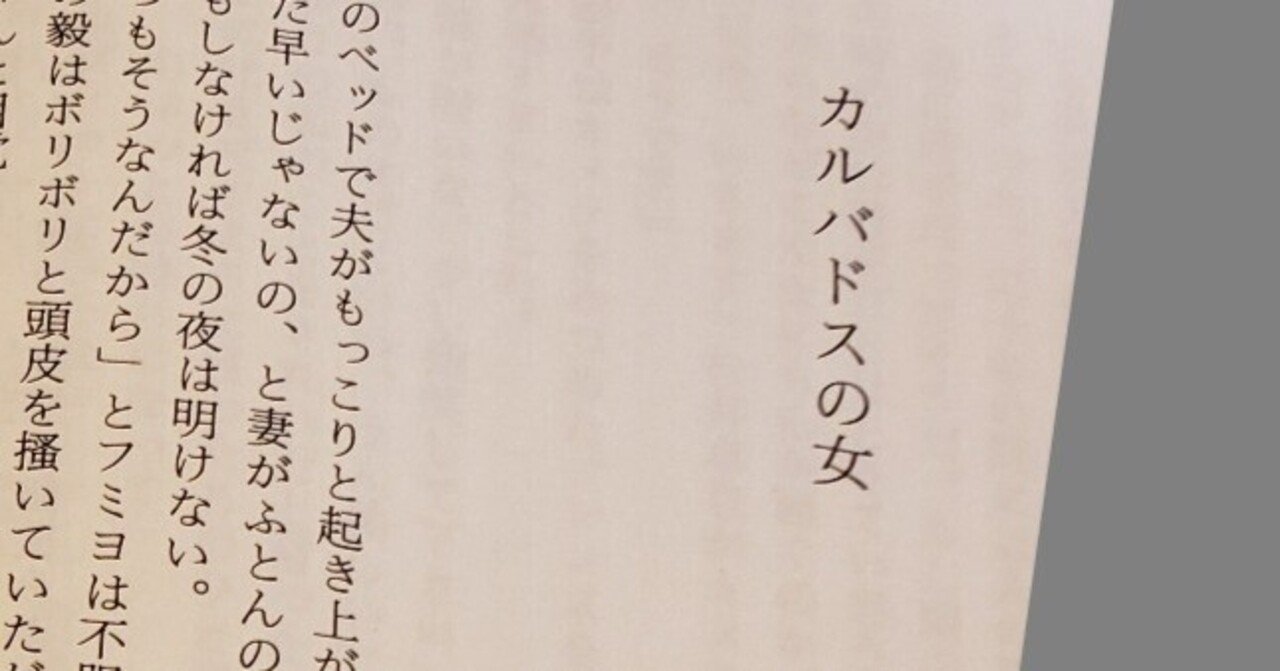 カルバドスの女
のベッドで夫がもっこりと起き上が
た早いじゃないの、と妻がふとんの
もしなければ冬の夜は明けない。
もそうなんだから」とフミヨは不
毅はボリボリと頭皮を掻いていただ